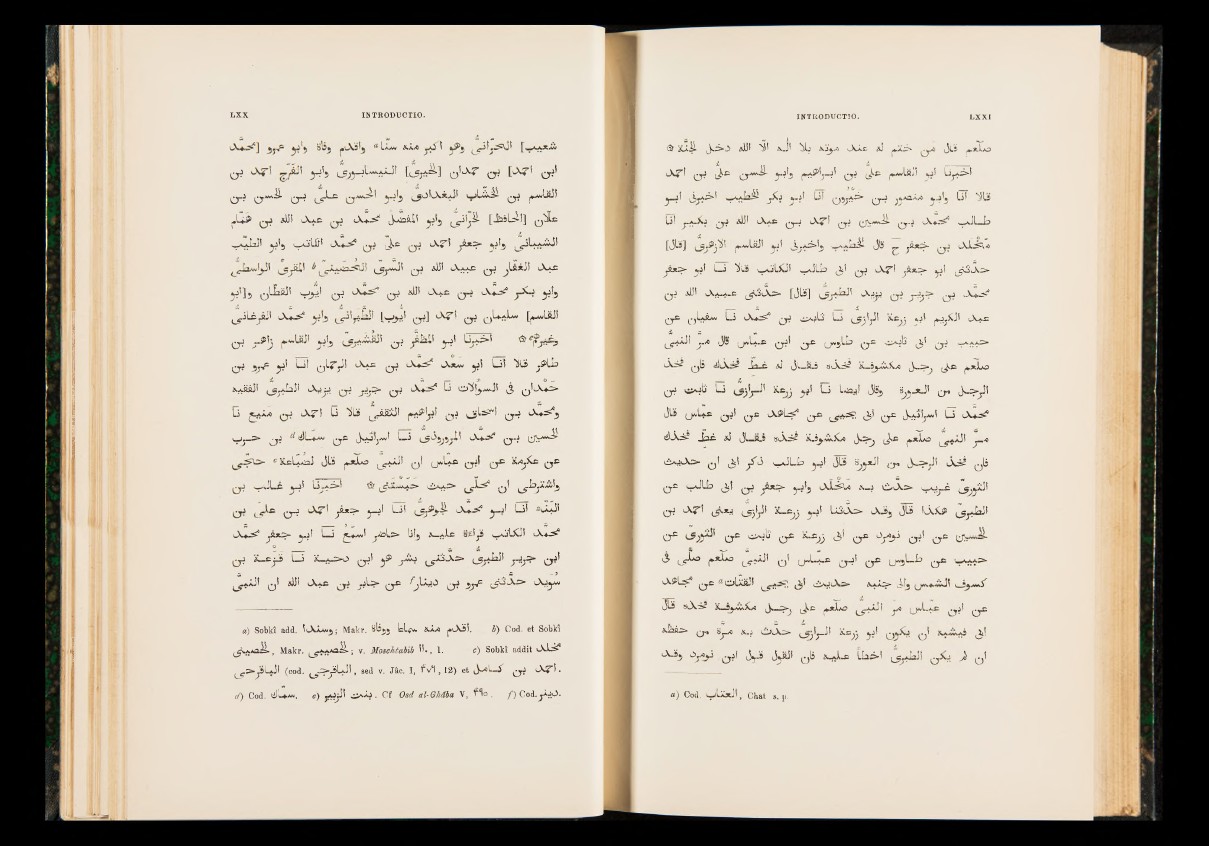 LXX INTRODUCTIO.
شعيب] الحرّانىّ وهو اكبر منه سنّا a واقدم وفاة وابو عمرو [محمّد
ابن احمد] بن حمدان [الحيرىّ] النيسابورىّ وابو الفرج احمد بن
القاسم بن الخشّاب البغدادىّ وابو الحسن علىّ بن الحسن بن
علّان [الحافظ] الحرّانىّ وابو المفضّل محمّد بن عبد الله بن همّام
الشيبانىّ وابو جعفر احمد بن علىّ بن محمّد الكاتب وابو الطيّب
عبد الغفّار بن عبيد الله بن السرىّ الحضينىّ b المقرئ الواسطىّ
وابو بكر محمّد بن عبد الله بن محمّد بن ايّوب القطّان و[ابو
القاسم] سليمان بن احمد [بن ايّوب] الطبرانىّ وابو محمّد الفرغانىّ
وغيرهم ۞ اخبرنا ابو المظفّر بن القشيرىّ وابو القاسم زاهر بن
طاهر قالا انا ابو سعد محمّد بن عبد الرحمان انا ابو عمرو بن
حمدان فى السوالات نا محمّد بن جرير بن يزيد الطبرىّ الفقيه
ومحمّد بن اسحاق بن ابراهيم الثقفىّ قالا نا احمد بن منيع نا
الحسين بن محمّد المروروذىّ نا اسرائيل عن سماك d بن حرب
عن عكرمة عن ابن عبّاس ان النبىّ صلعم قال لضباعة e حجّى
واشترطى ان محلّى حيث حبستنى ۞ اخبرنا ابو غالب بن
البنّه انا ابو محمّد الجوهرىّ انا ابو جعفر احمد بن علىّ بن
محمّد الكاتب قراءة عليه وانا حاضر اسمع نا ابو جعفر محمّد
ابن جرير الطبرىّ حدّثنى بشر هو ابن دحية نا قزعة بن
سويد حدّثنى عمرو بن دينار f عن جابر بن عبد الله ان النبىّ
a) Sobkî add. وسندا; Makr. اقدم منه سماعا ووفاة. b) Cod. et Sobkî
الحصينى, Makr. الحصيبى; v. Moschtabih ١٦٠, l. c) Sobkî addit مخلد
احمد بن كامل et (12 ,٢٧٦ ,I .Jâc .v sed ,الباقرجى .cod) الباقرحى.
d) Cod. سمّاك, e) بنت الزبير. Cf Osd al-Ghâba V, ٤٩٥. f) Cod. دينر.
INTRODUCTIO. LXXI
صلعم قال من ختم له عند موته بلا اله الّا الله دخل الجنّة ۞
اخبرنا ابو القاسم علىّ بن ابراهيم وابو الحسن علىّ بن احمد
قالا نا وابو منصور بن خيرون انا ابو بكر الخطيب اخبرنى ابو
طالب محمّد بن الحسين بن احمد بن عبد الله بن بكير انا
مخلد بن جعفر ح قال الخطيب واخبرنى ابو القاسم الازهرىّ [قال]
حدّثنى ابو جعفر احمد بن ابى طالب الكاتب قالا نا ابو جعفر
محمّد بن جرير بن يزيد الطبرىّ [قال] حدّثنى عبيد الله بن
عبد الكريم ابو زرعة الرازىّ نا ثابت بن محمّد نا سفيان عن
حبيب بن ابى ثابت عن طاوس عن ابن عبّاس قال مرّ النبىّ
صلعم على رجل مكشوفة فخذه فقال له غطّ فخذك فان فخذ
الرجل من العورة وقال ايضا نا ابو زرعة الرازىّ نا ثابت بن
محمّد نا اسرائيل عن ابى يحيى عن مجاهد عن ابن عبّاس قال
مرّ النبىّ صلعم على رجل مكشوفة فخذه فقال له غطّ فخذك
فان فخذ الرجل من العورة قال ابو طالب ذكر ابى ان حديث
الثورىّ غريب حدّث به مخلد وابو جعفر بن ابى طالب عن
الطبرىّ هكذا قال وقد حدّثنا ابو زرعة الرازىّ يعنى احمد بن
الحسين عن ابن دومرد عن ابى زرعة عن ثابت عن الثورىّ عن
حبيب عن طاوس عن ابن عبّاس ان النبىّ صلعم صلّى فى
كسوف الشمس والى جنبه حديث ابى يحيى القتّات a عن مجاهد
عن ابن عبّاس مرّ النبىّ صلعم على رجل مكشوفة فخذه قال
ابى فيشبه ان يكون ابو زرعة الرازىّ حدّث به مرّة من حفظه
ان لم يكن الطبرىّ اخطأ عليه فان القول قول ابن دومرد وقد
a) Cod. العتاب, Chat. s. p.